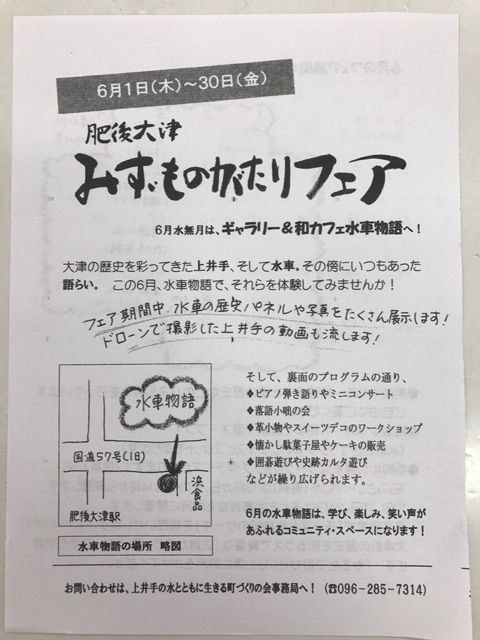 6月1日(木)~30日(金)
肥後大津
みずものがたりフェア
6月水無月は、ギャラリー&和カフェ水車物語へ!
大津の歴史を彩ってきた上井手、そして水車。その傍にいつもあった
語らい。 この6月、水車物語で、それらを体験してみませんか!
フェア期間中、水車の歴史パネルや写真をたくさん展示します!
ドローンで撮影した上井手の動画も流します!
水車物語
国道57号(旧)
浜食品
肥後大津駅
水車物語の場所 略図
そして、裏面のプログラムの通り、
◆ピアノ弾き語りやミニコンサート
◆落語小咄の会
◆革小物やスイーツデコのワークショップ
◆懐かし駄菓子屋やケーキの販売
◆囲碁遊びや史跡カルタ遊び
などが繰り広げられます。
6月の水車物語は、学び、楽しみ、笑い声が
あふれるコミュニティ・スペースになります!
お問い合わせは、上井手の水とともに生きる町づくりの会事務局へ! (☎096-285-7314)